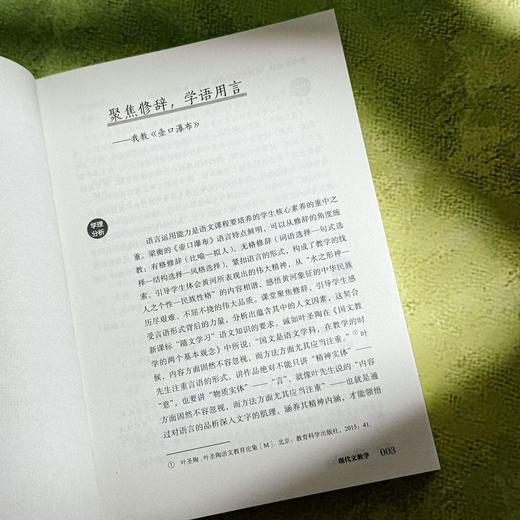 聚焦修辞，学语用言
——我教《壶口瀑布》
学理
分析
语言运用能力是语文课程要培养的学生核心素养的重中之
重。梁衡的《壶口瀑布》语言特点鲜明，可以从修辞的角度施
教：有格修辞（比喻—拟人）、无格修辞（词语选择—句式选
择—结构选择—风格选择），紧扣语言的形式，构成了教学的线
索。引导学生体会黄河所表现出的伟大精神，从“水之形神—
人之个性—民族性格”的内容相谐，感悟黄河象征的中华民族
历尽艰难、不屈不挠的伟大品质。课堂聚焦修辞，引导学生感
受言语形式背后的力量，分析出蕴含其中的人文因素，这契合
新课标“随文学习”语文知识的要求。诚如叶圣陶在《国文教
学的两个基本观念》中所说：“国文是语文学科，在教学的时
候，内容方面固然不容忽视，而方法方面尤其应当注重。”①叶
先生注重言语的形式，讲作品绝对不能只讲“精神实体”——
“意”，也要讲“物质实体”——“言”，就像叶先生说的“内容
方面固然不容忽视，而方法方面尤其应当注重”——也就是通
过对语言的品析深入文字的肌理，涵养其精神内涵，才能领悟
① 叶圣陶．叶圣陶语文教育论集［M］．北京：教育科学出版社，2015：41.
现代文教学 003